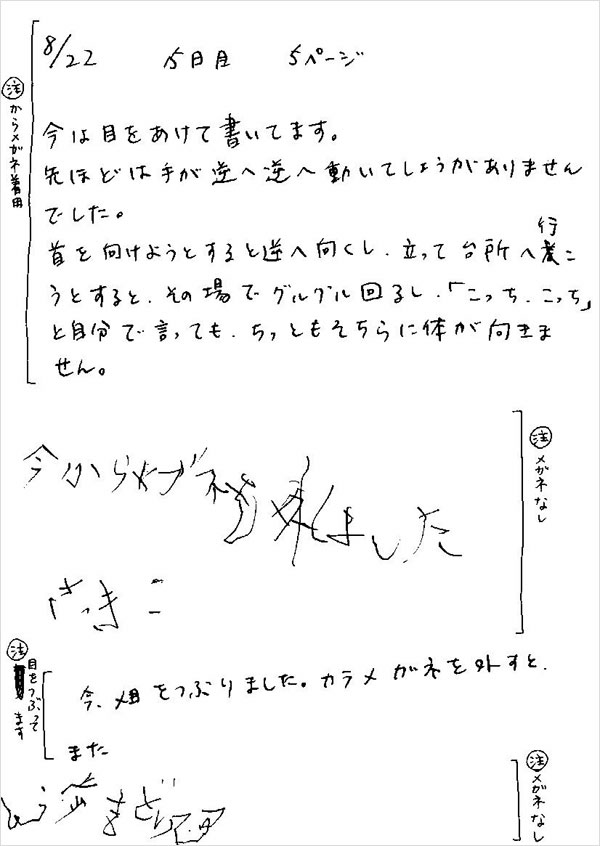 8/22 15日目 5ページ
㊟からメガネ着用
今は目をあけて書いてます。
先ほどは手が逆へ逆へ動いてしょうがありません
でした。
首を向けようとすると逆へ向くし、立って台所へ行こ
うとすると、その場でグルグル回るし、「こっち、こっち」
と自分で言っても、ちっともそちらに体が向きま
せん。
㊟メガネなし
今からメガネを外しました
さっきこ
㊟目をつぶってます
今、目をつぶりました。カラメガネを外すと、
また
㊟メガネなし